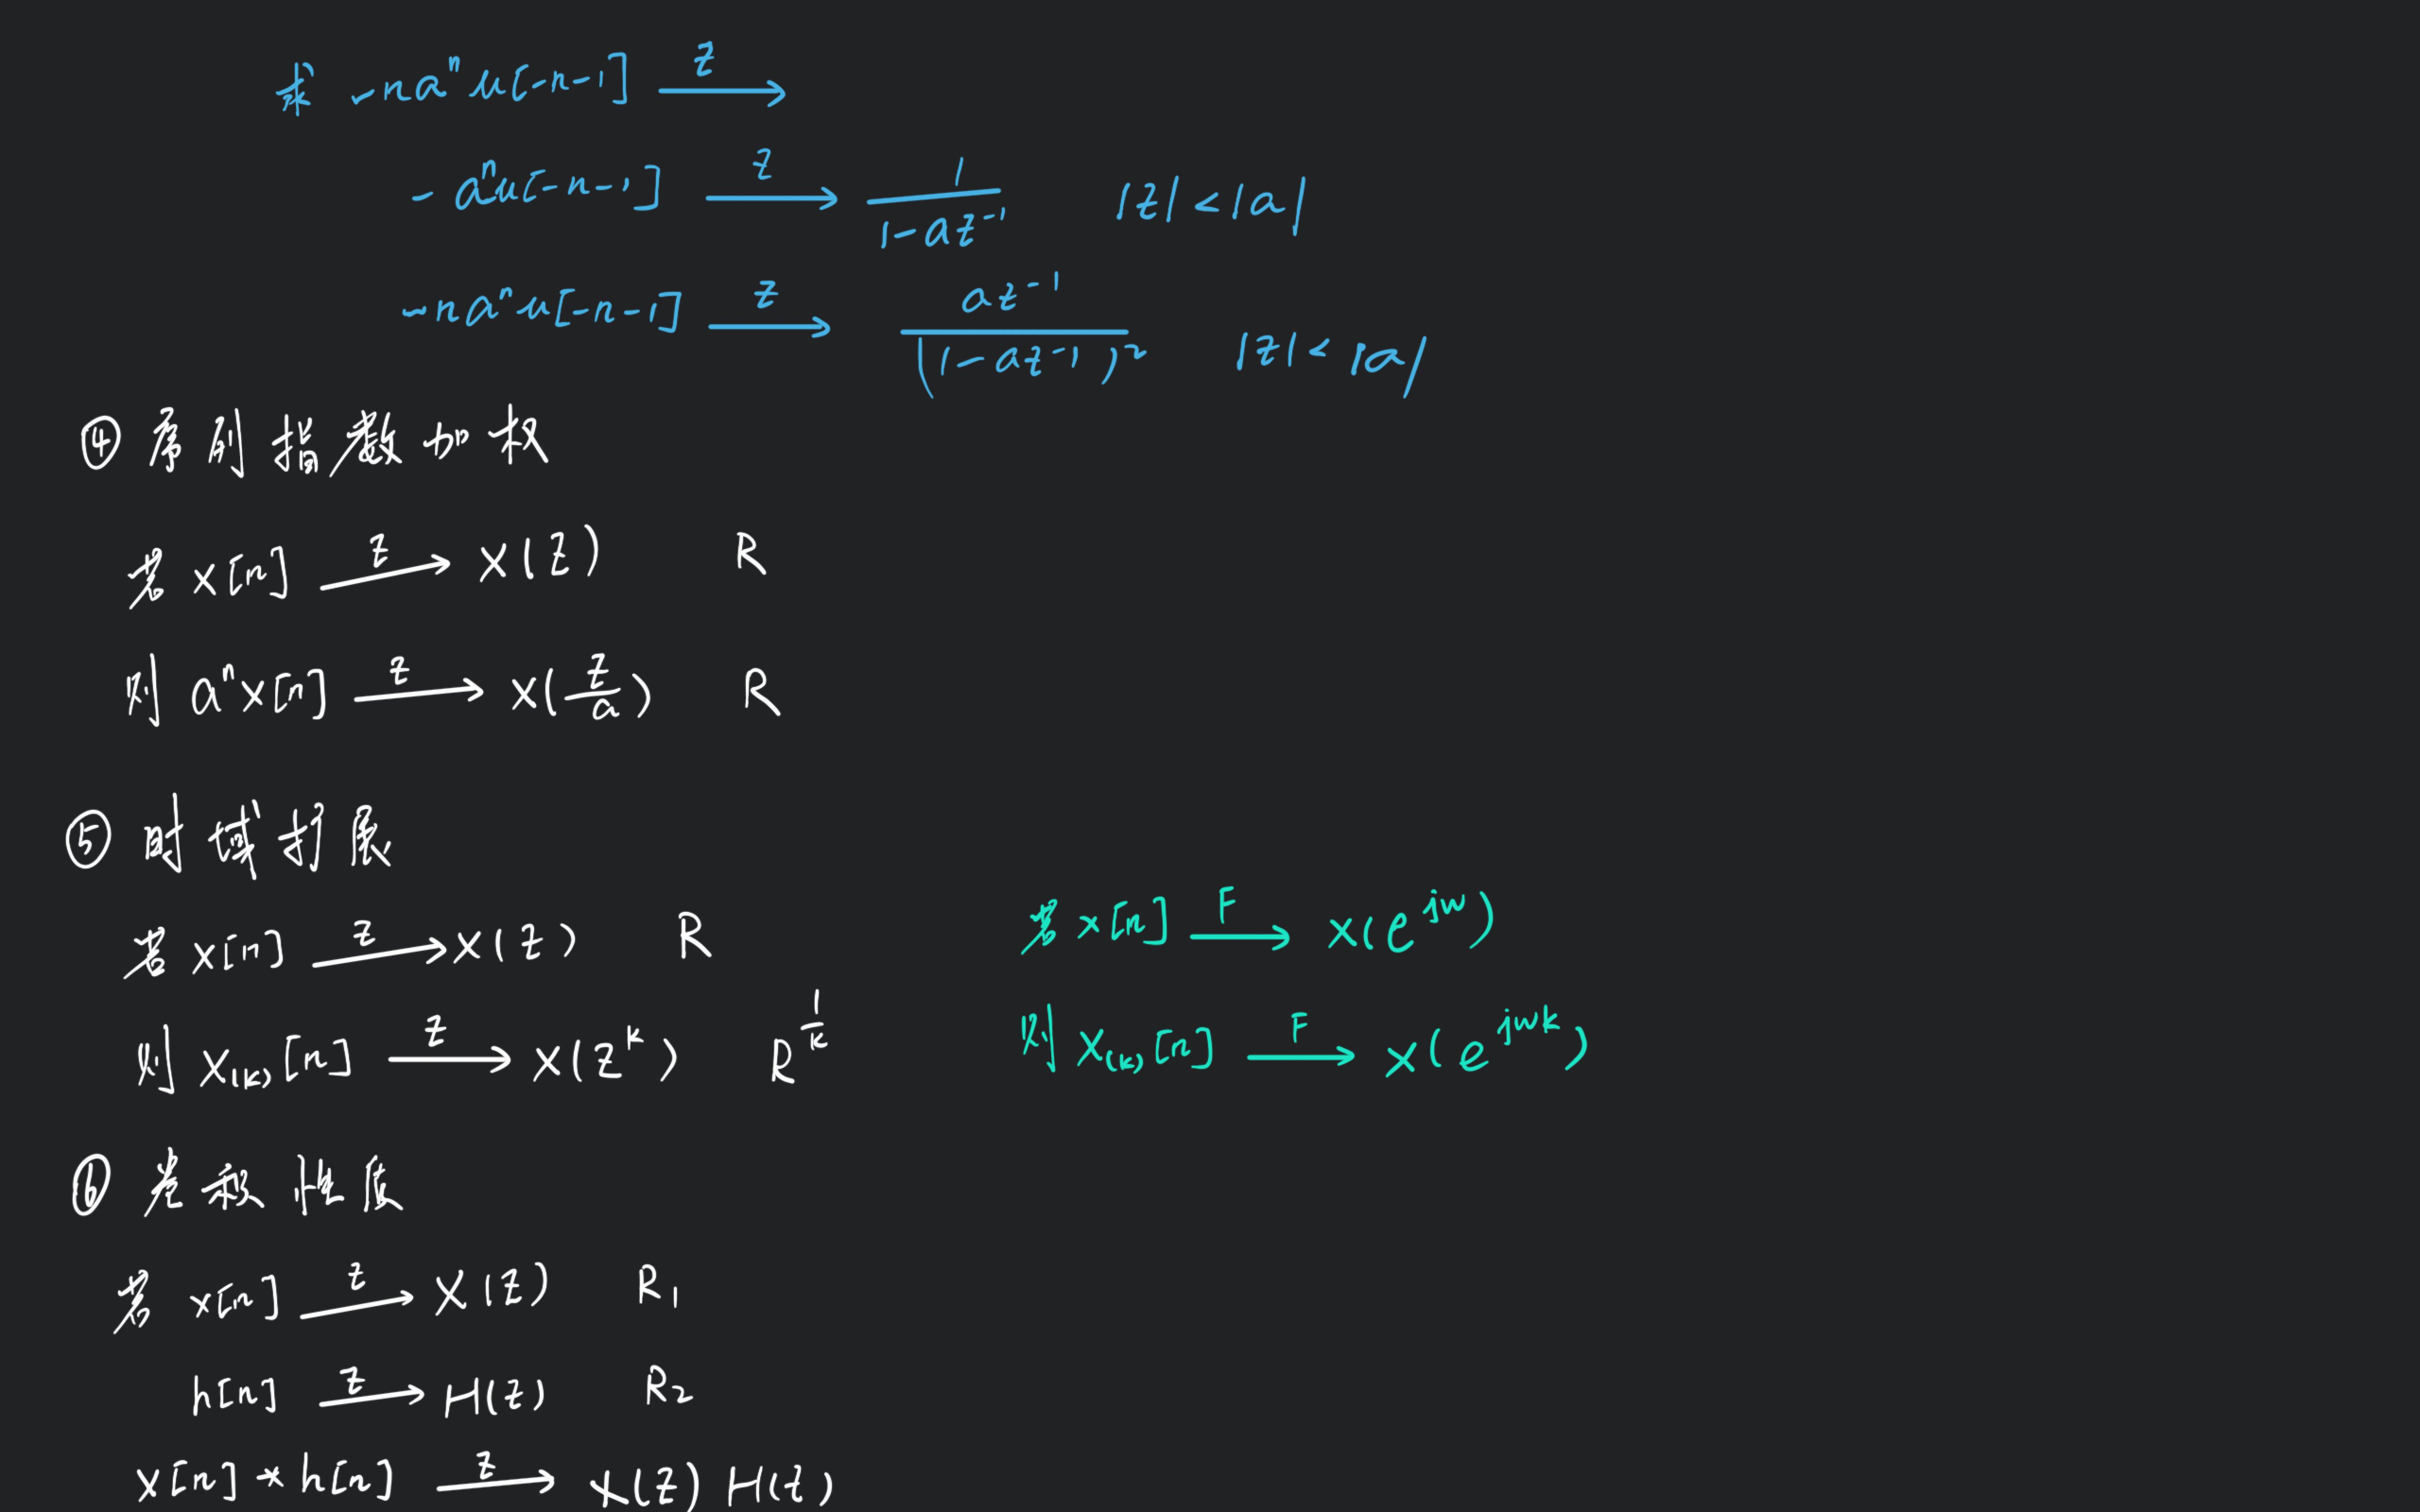 求 -naⁿu[-n-1] —z→
-aⁿu[-n-1] —z→ 1/(1-az⁻¹) |z|<|a|
-naⁿu[-n-1] —z→ az⁻¹/(1-az⁻¹)² |z|<|a|
④序列指数加权
若 x[n] —z→ X(z) R
则 aⁿx[n] —z→ X(z/a) R
⑤时域扩展
若 x[n] —z→ X(z) R 若 x[n] —F→ X(e^{jw})
则 X₍ₖ₎[n] —z→ X(z^k) R^{1/k} 则 X₍ₖ₎[n] —F→ X(e^{jwk})
⑥卷积性质
若 x[n] —z→ X(z) R₁
h[n] —z→ H(z) R₂
x[n]*h[n] —z→ X(z)H(z)